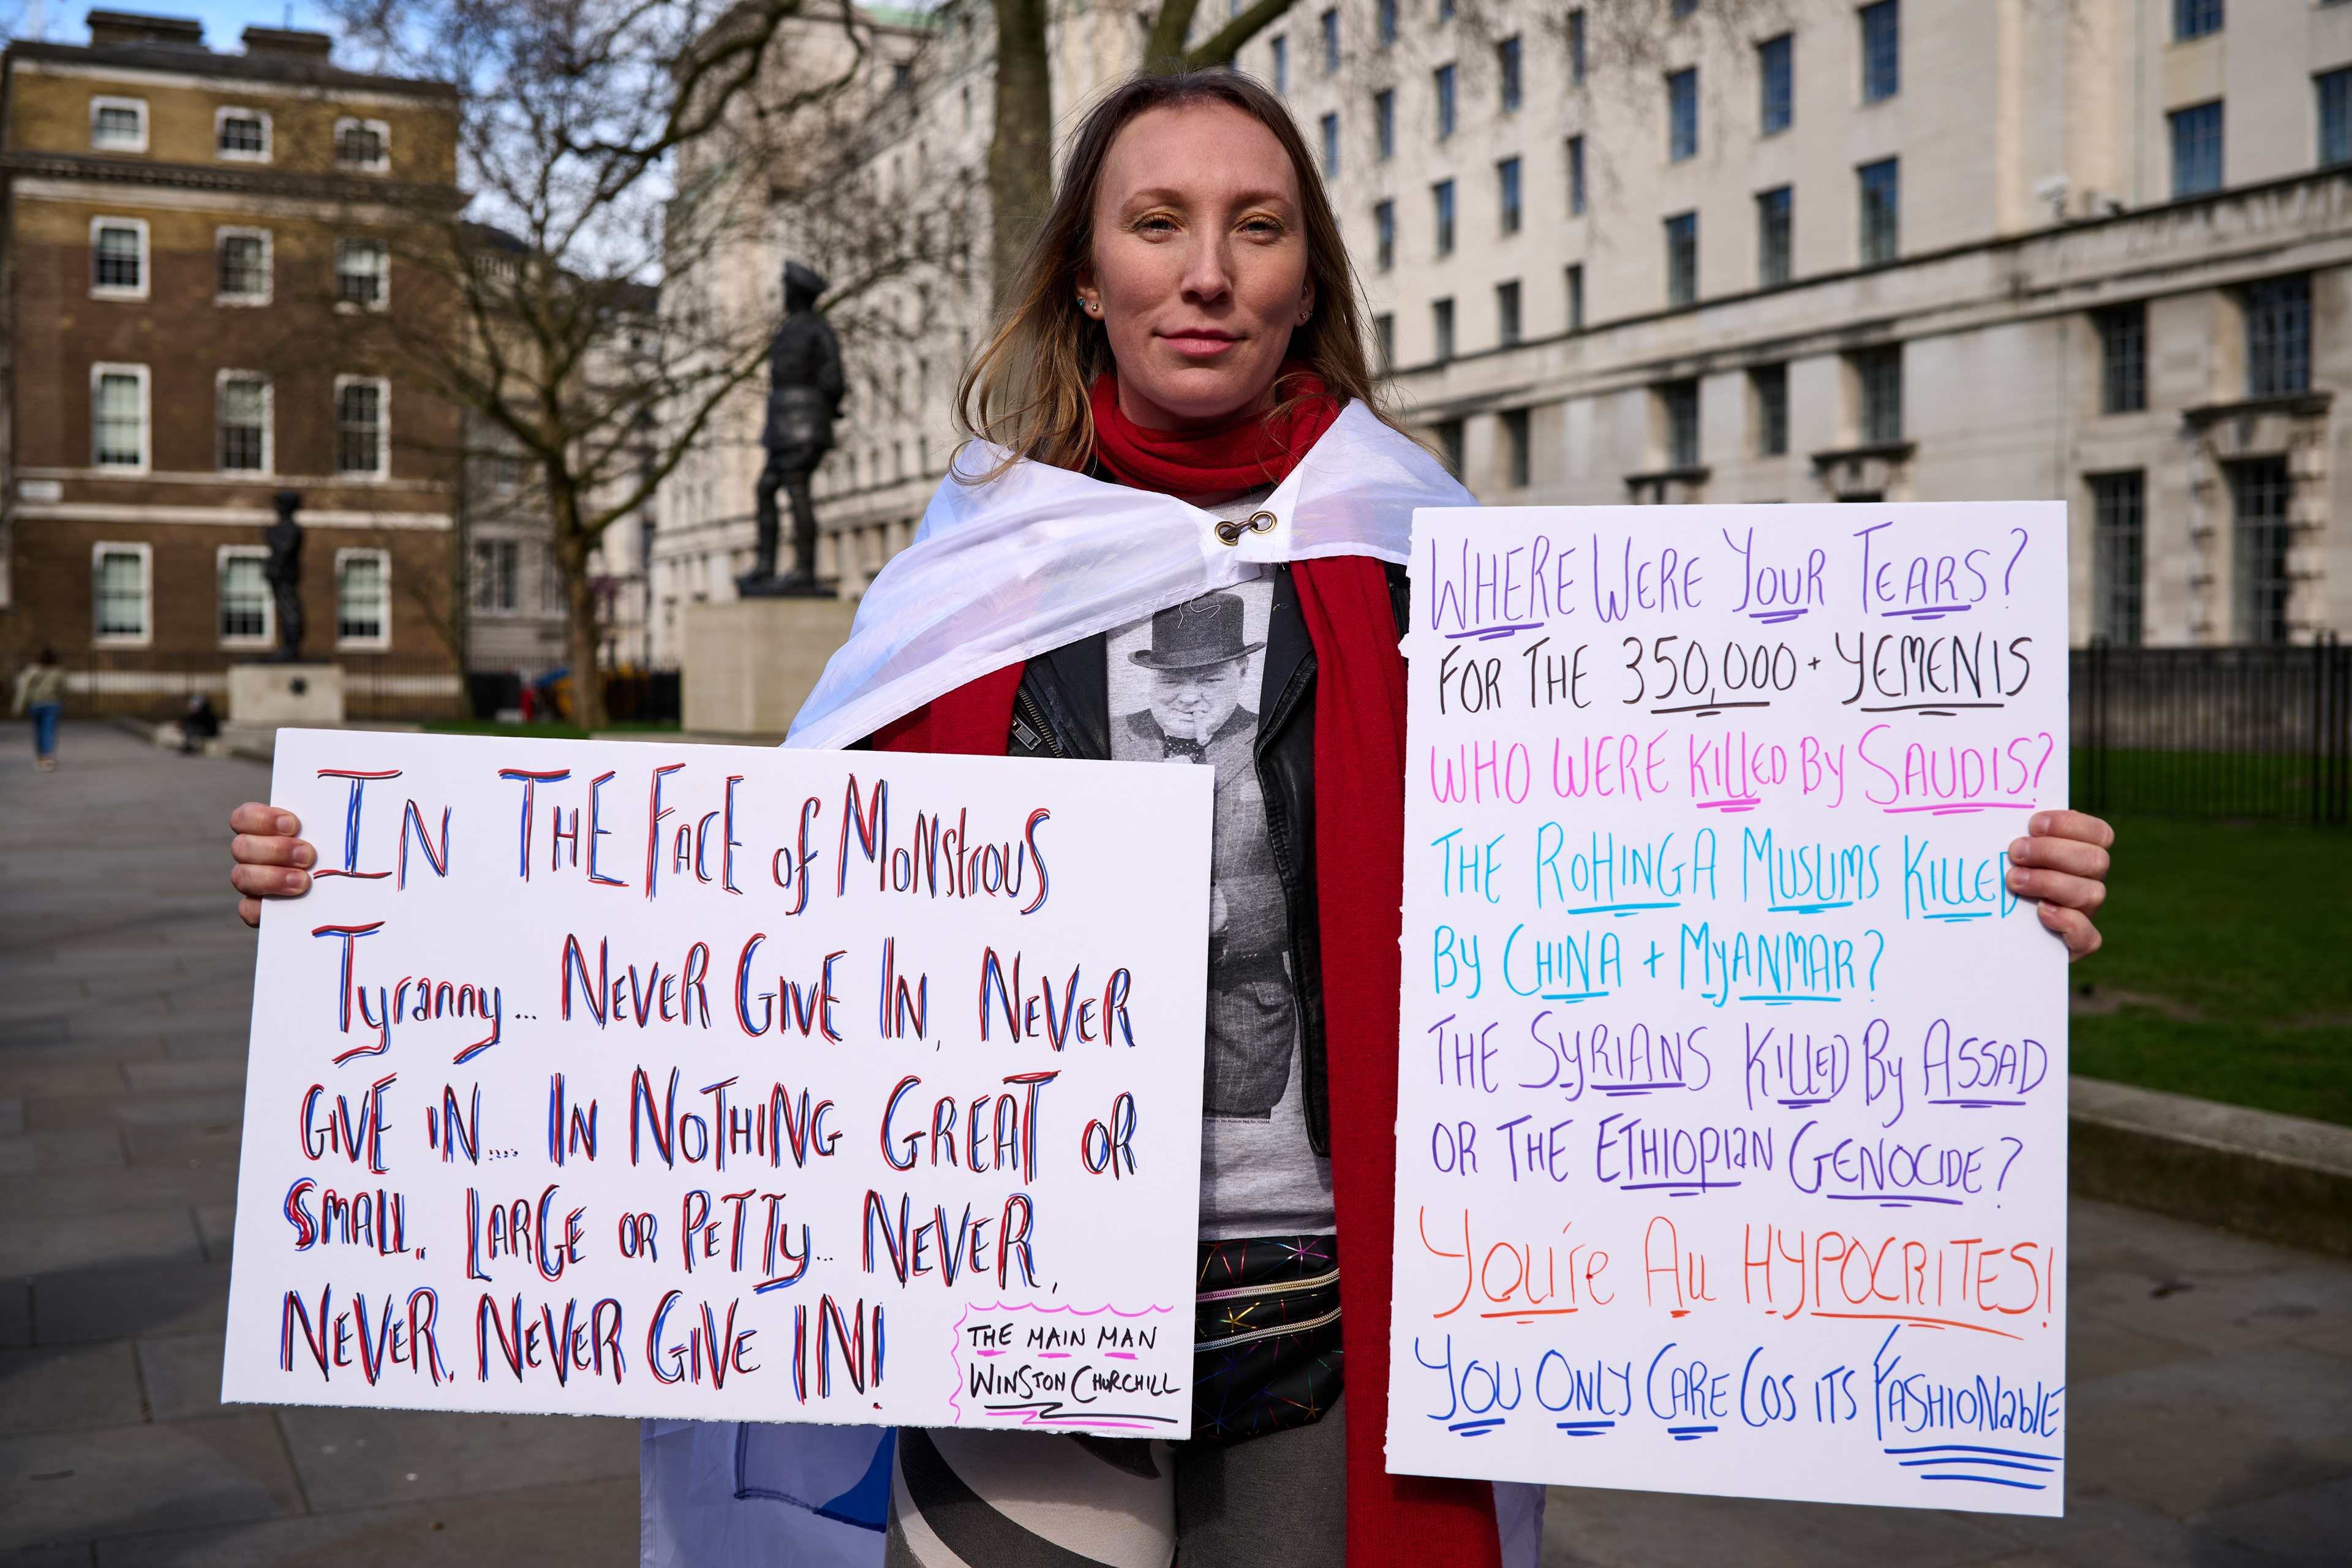 IN THE FACE of MONStrOUS
Tyranny... NEVER GIVE IN, NEVER
GIVE IN.... IN NOTHING GREAT OR
SMALL.. LARGE OR PETTy... NEVER,
NEVER. NEVER GIVE IN!
THE MAIN MAN
WINSTON CHURCHILL
WHERE WERE YOUR TEARS?
FOR THE 350,000+ YEMENIS
WHO WERE KILLED By SAUDIS?
THE ROHINGA MUSLIMS KILLED
By CHINA + MyANMAR?
THE SyRIANS KILLED By ASSAD
OR THE ETHIOPIaN GENOCIDE?
YOU're All HYPOCRITES!
YOU ONLY CARE COS ITS FASHIONabLE